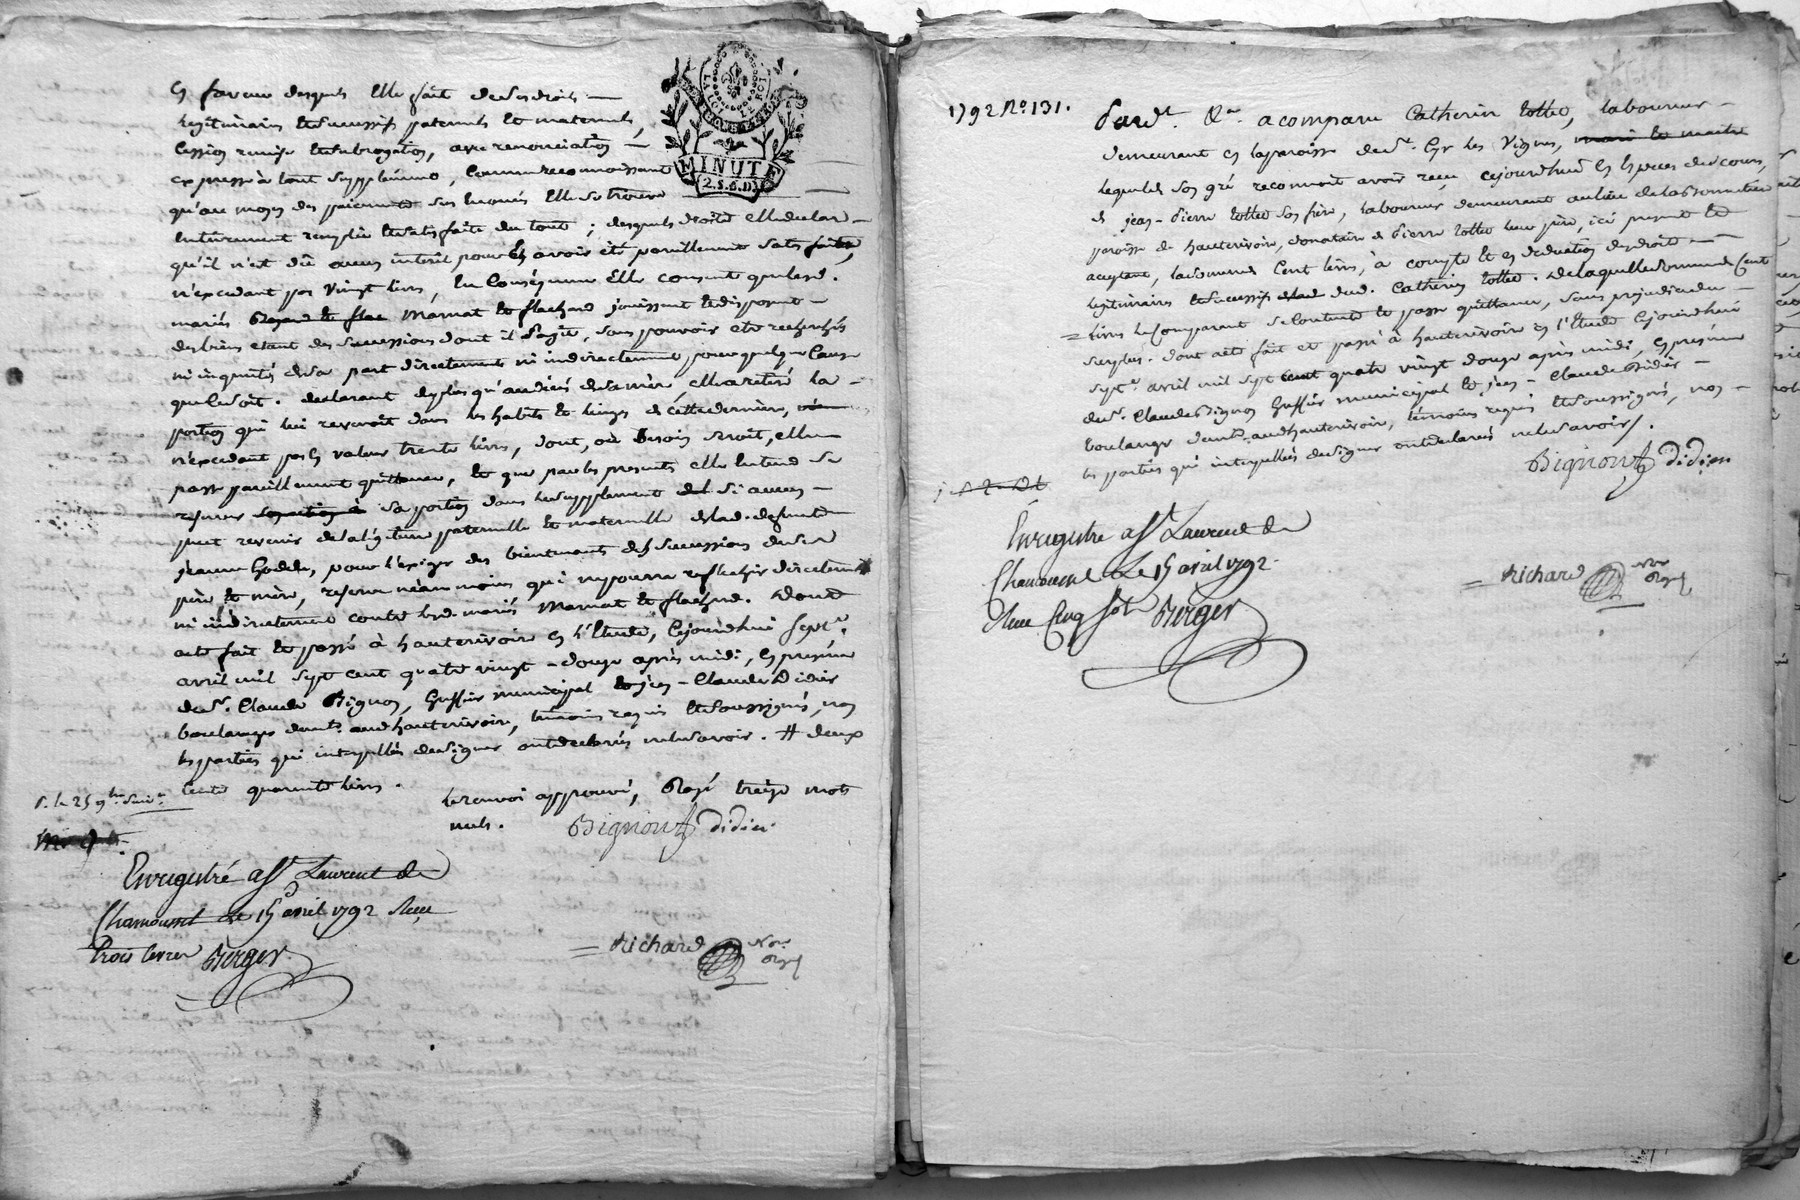 en faveur desquels elle fait de ses droits
légitimaires et successifs paternels et maternels,
cession remise et subrogation, avec renonciation
expresse à tout supplément, comme reconnoissant
qu'au moyen des paiements sus énoncés elle se trouve
entièrement remplie et satisfaite du tout ; desquels droits elle déclare
qu'il n'est dû aucun intérêt pour en avoir été pareillement satisfaite,
n'excedant pas vingt livres, en conséquence elle consent que lesd.
mariés Mamat et flachard jouissent et disposent
des biens étant des successions dont il s'agit, sans pouvoir être recherchés
ni inquiétés de sa part directement ni indirectement, pour quelque cause
que ce soit. declarant de plus qu'au décès de sa mère, elle a retiré la
portion qui lui revenoit dans les habits et linges de cette dernière,
n'excedant pas en valeur trente livres, dont, où besoin seroit, elle
passe pareillement quittance, et que par les presentes elle entend se
reserver sa portion dans le supplément si aucun
peut revenir de la légitime paternelle et maternelle de lad. defunte
jeanne , pour l'exiger des biens tenants des successions de ses
père et mère, reserve néanmoins, qui ne pourra reflechir directement
ni indirectement contre lesd. mariés Mamat et flachard. Dont
acte fait et passé à hauterivoire en l'Etude, cejourdhui sept.e
avril mil sept cent quatre vingt-douze après midi, en présence
de s.r Claude Bignon, Greffier municipal et jean-Claude Didier
boulanger demt. aud hauterivoire, témoins requis et soussignés, non
les parties qui interpellées de signer ont declaré ne le savoir. # deux
cents quarante livres.
le renvoi approuvé, Rayé treize mots
nuls.
Bignon Gr Didier
Enregistré a St Laurent de
Chamousset le 15 avril 1792 Reçu
trois livres Berger
= Richard Nore
Royal
MINUTE
2.S.6.D.
LA LOI LE ROI
1792 No. 131.
Pardt. a comparu Catherin tottet, laboureur
demeurant en la paroisse de st. Cyr les Vignes,
lequel de son gré reconnoit avoir reçu cejourdhui en espèces de cours,
de jean-Pierre tottet son frère, laboureur demeurant au lieu de la
paroisse de hauterivoire, donataire de Pierre tottet leur père, ici present et
acceptant, la somme de Cent livres, à compte et en deduction des droits
légitimaires et successifs dud. Catherin tottet. De laquelle somme de Cent
= livres le comparant se contente et passe quittance, sans prejudice du
surplus. dont acte fait et passé à hauterivoire en l'Etude cejourdhui
sept.e avril mil sept cent quatre vingt douze après midi, en présence
de s.r Claude Bignon Greffier municipal et jean-Claude Didier
boulanger demt. aud hauterivoire, témoins requis et soussignés, non
les parties qui interpellées de signer ont declaré ne le savoir.
Bignon Gr Didier
Enregistré a St Laurent de
Chamousset le 15 avril 1792.
Reçu Cinq sols Berger
= Richard Nore
Royal